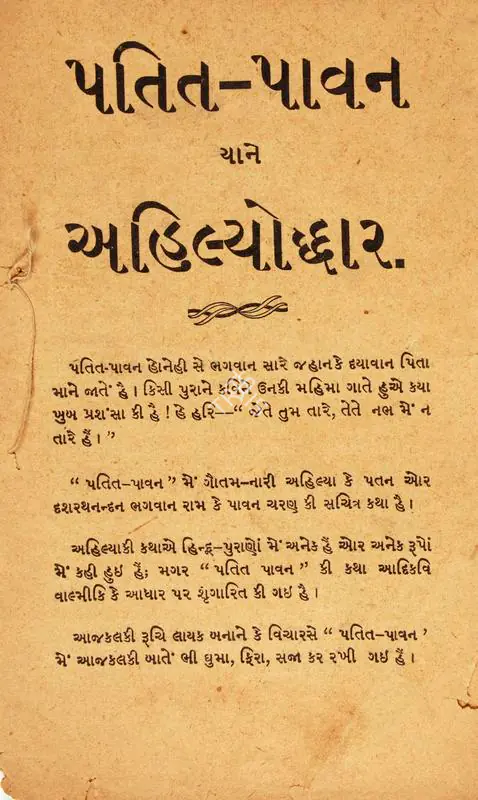 પતિત–પાવન
યાને
અહિલ્યોદ્ધાર.
પતિત-પાવન હોનેહી સે ભગવાન સારે જહાનકે દયાવાન પિતા
માને જાતેં હૈ । કિસી પુરાને કવિને ઉનકી મહિમા ગાતે હુએ કયા
ખુબ પ્રશંસા કી હૈ ! હે હરિ––“ જેતે તુમ તારે, તેતે નભ મેં ન
તારે હૈં । ”
“ પતિત–પાવન ” મેં ગૌતમ–નારી અહિલ્યા કે પતન ઓર
દશરથનન્દન ભગવાન રામ કે પાવન ચરણ કી સચિત્ર કથા હૈ ।
અહિલ્યાકી કથાએ હિન્દૂ–પુરાણોં મેં અનેક હૈં ઓર અનેક રૂપોં
મેં કહી હુઇ હૈં; મગર “ પતિત પાવન ” કી કથા આદિકવિ
વાલ્મીકિ કે આધાર પર શૃંગારિત કી ગઇ હૈ ।
આજકલકી રૂચિ લાયક બનાને કે વિચારસે “ પતિત–પાવન ’
મેં આજકલકી બાતેં ભી ઘુમા, ફિરા, સજા કર રખી ગઇ હૈં ।